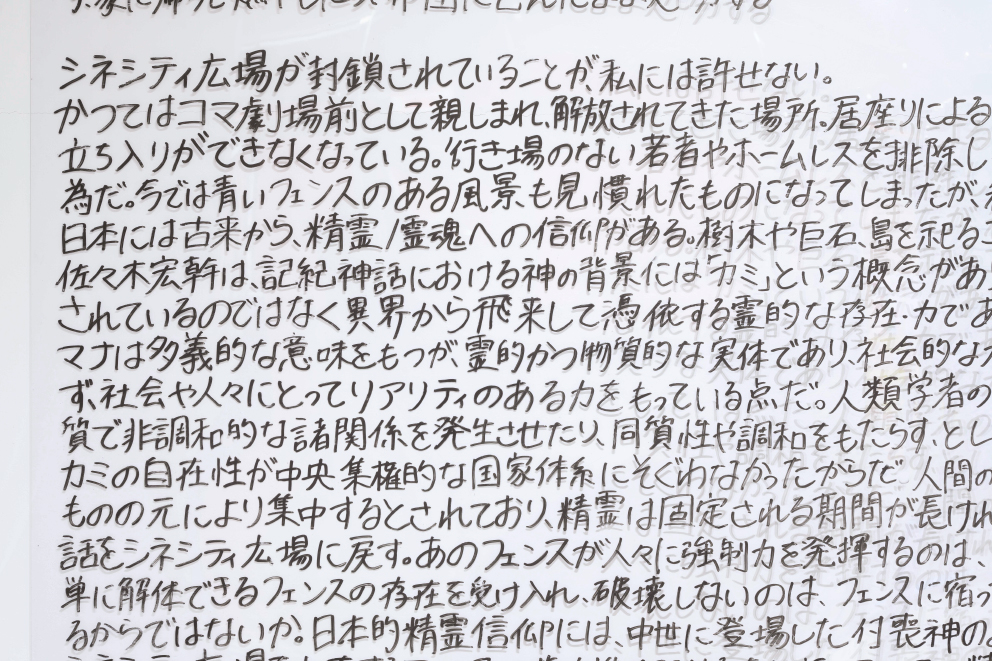 シネシティ広場が封鎖されていることが、私には許せない。
かつてはコマ劇場前として親しまれ、解放されてきた場所。居座りによる
立ち入りができなくなっている。行き場のない若者やホームレスを排除し
為だ。今では青いフェンスのある風景も見慣れたものになってしまったが、
日本には古来から、精霊/霊魂への信仰がある。樹木や巨石、島を祀るこ
佐々木宏幹は、記紀神話における神の背景には「カミ」という概念があり
されているのではなく異界から飛来して憑依する霊的な存在・力であ
マナは多義的な意味をもつが、霊的かつ物質的な実体であり、社会的な
ず、社会や人々にとってリアリティのある力をもっている点だ。人類学者の
質で非調和的な諸関係を発生させたり、同質性や調和をもたらす、とし
カミの自在性が中央集権的な国家体系にそぐわなかったからだ 人間の
ものの元により集中するとされており、精霊は固定される期間が長けれ
話をシネシティ広場に戻す。あのフェンスが人々に強制力を発揮するのは、
単に解体できるフェンスの存在を受け入れ、破壊しないのは、フェンスに宿っ
るからではないか。日本的精霊信仰には、中世に登場した付喪神の